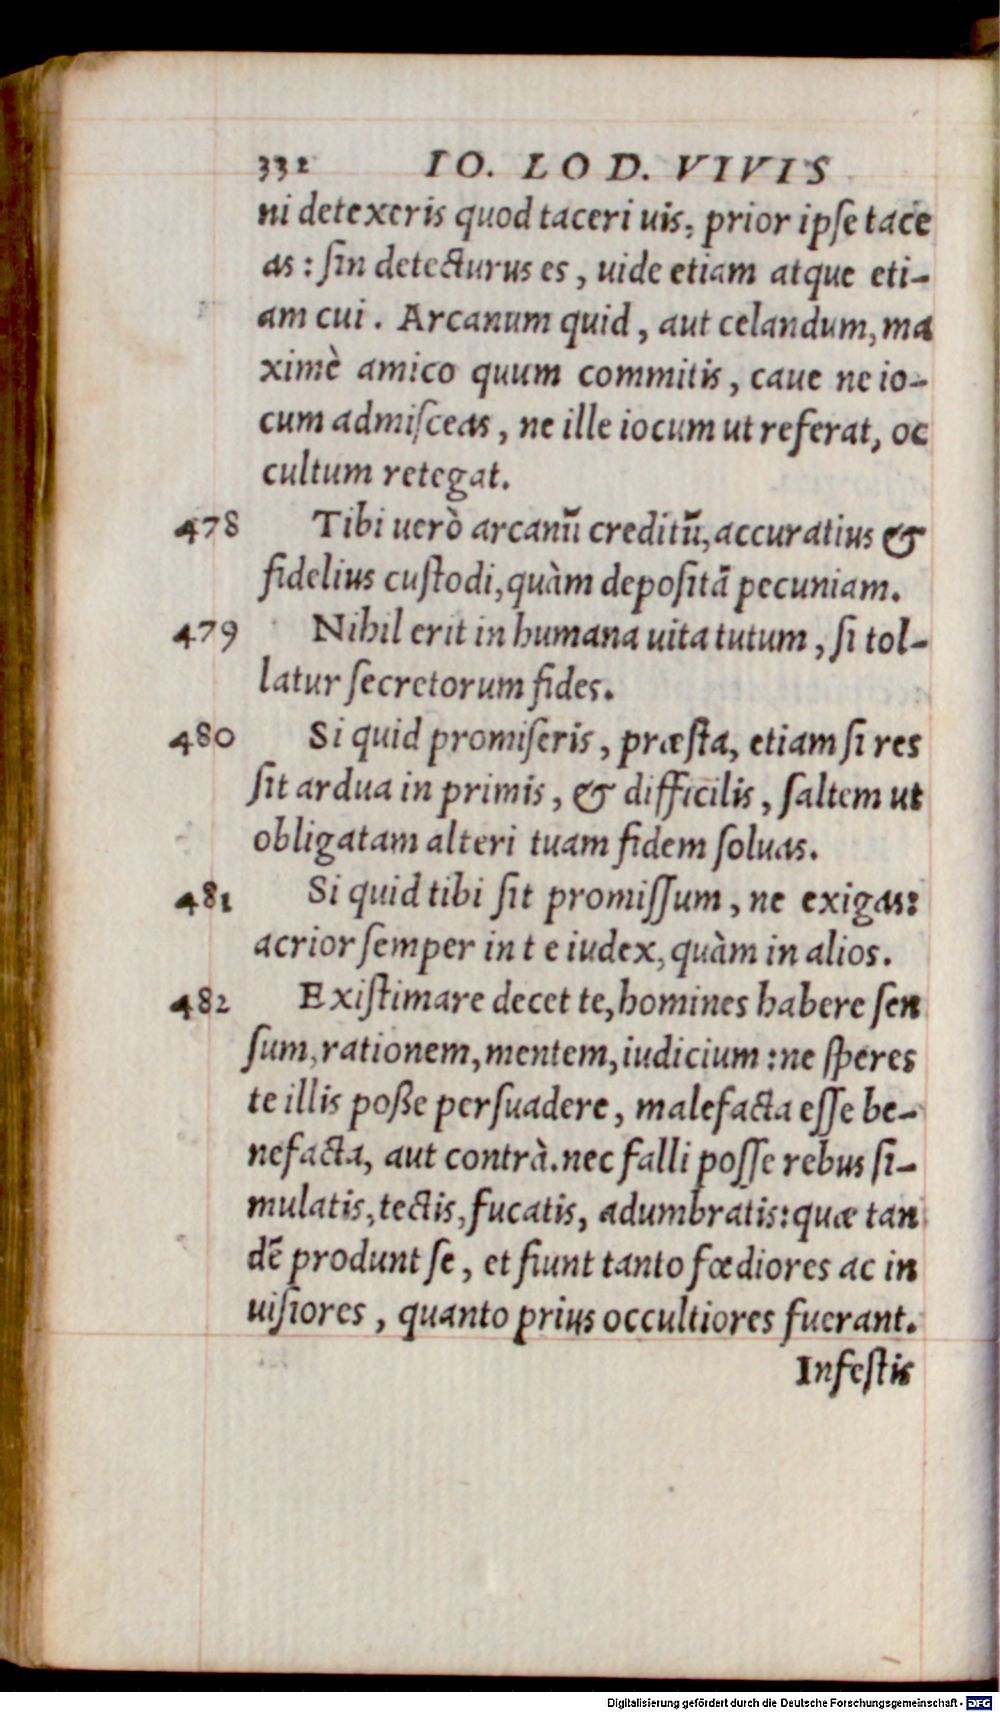 332 IO. LOD. VIVIS
ni detexeris quod taceri uis, prior ipſe tace
as: ſin detecturus es, uide etiam atque eti-
am cui. Arcanum quid, aut celandum, ma
ximè amico quum commitis, caue ne io-
cum admiſceas, ne ille iocum ut referat, oc
cultum retegat.
478 Tibi uerò arcanū creditū, accuratius &
fidelius cuſtodi, quàm depoſitā pecuniam.
479 Nihil erit in humana uita tutum, ſi tol-
latur ſecretorum fides.
480 Si quid promiſeris, præſta, etiam ſi res
ſit ardua in primis, & difficilis, ſaltem ut
obligatam alteri tuam fidem ſoluas.
481 Si quid tibi ſit promiſſum, ne exigas:
acrior ſemper in t e iudex, quàm in alios.
482 Exiſtimare decet te, homines habere ſen
ſum, rationem, mentem, iudicium: ne ſperes
te illis poße perſuadere, malefacta eſſe be-
nefacta, aut contrà. nec falli poſſe rebus ſi-
mulatis, tectis, fucatis, adumbratis: quæ tan
dē produnt ſe, et fiunt tanto fœdiores ac in
uiſiores, quanto prius occultiores fuerant.
Infeſtis
Digitalisierung gefördert durch die Deutsche Forschungsgemeinschaft - DFG